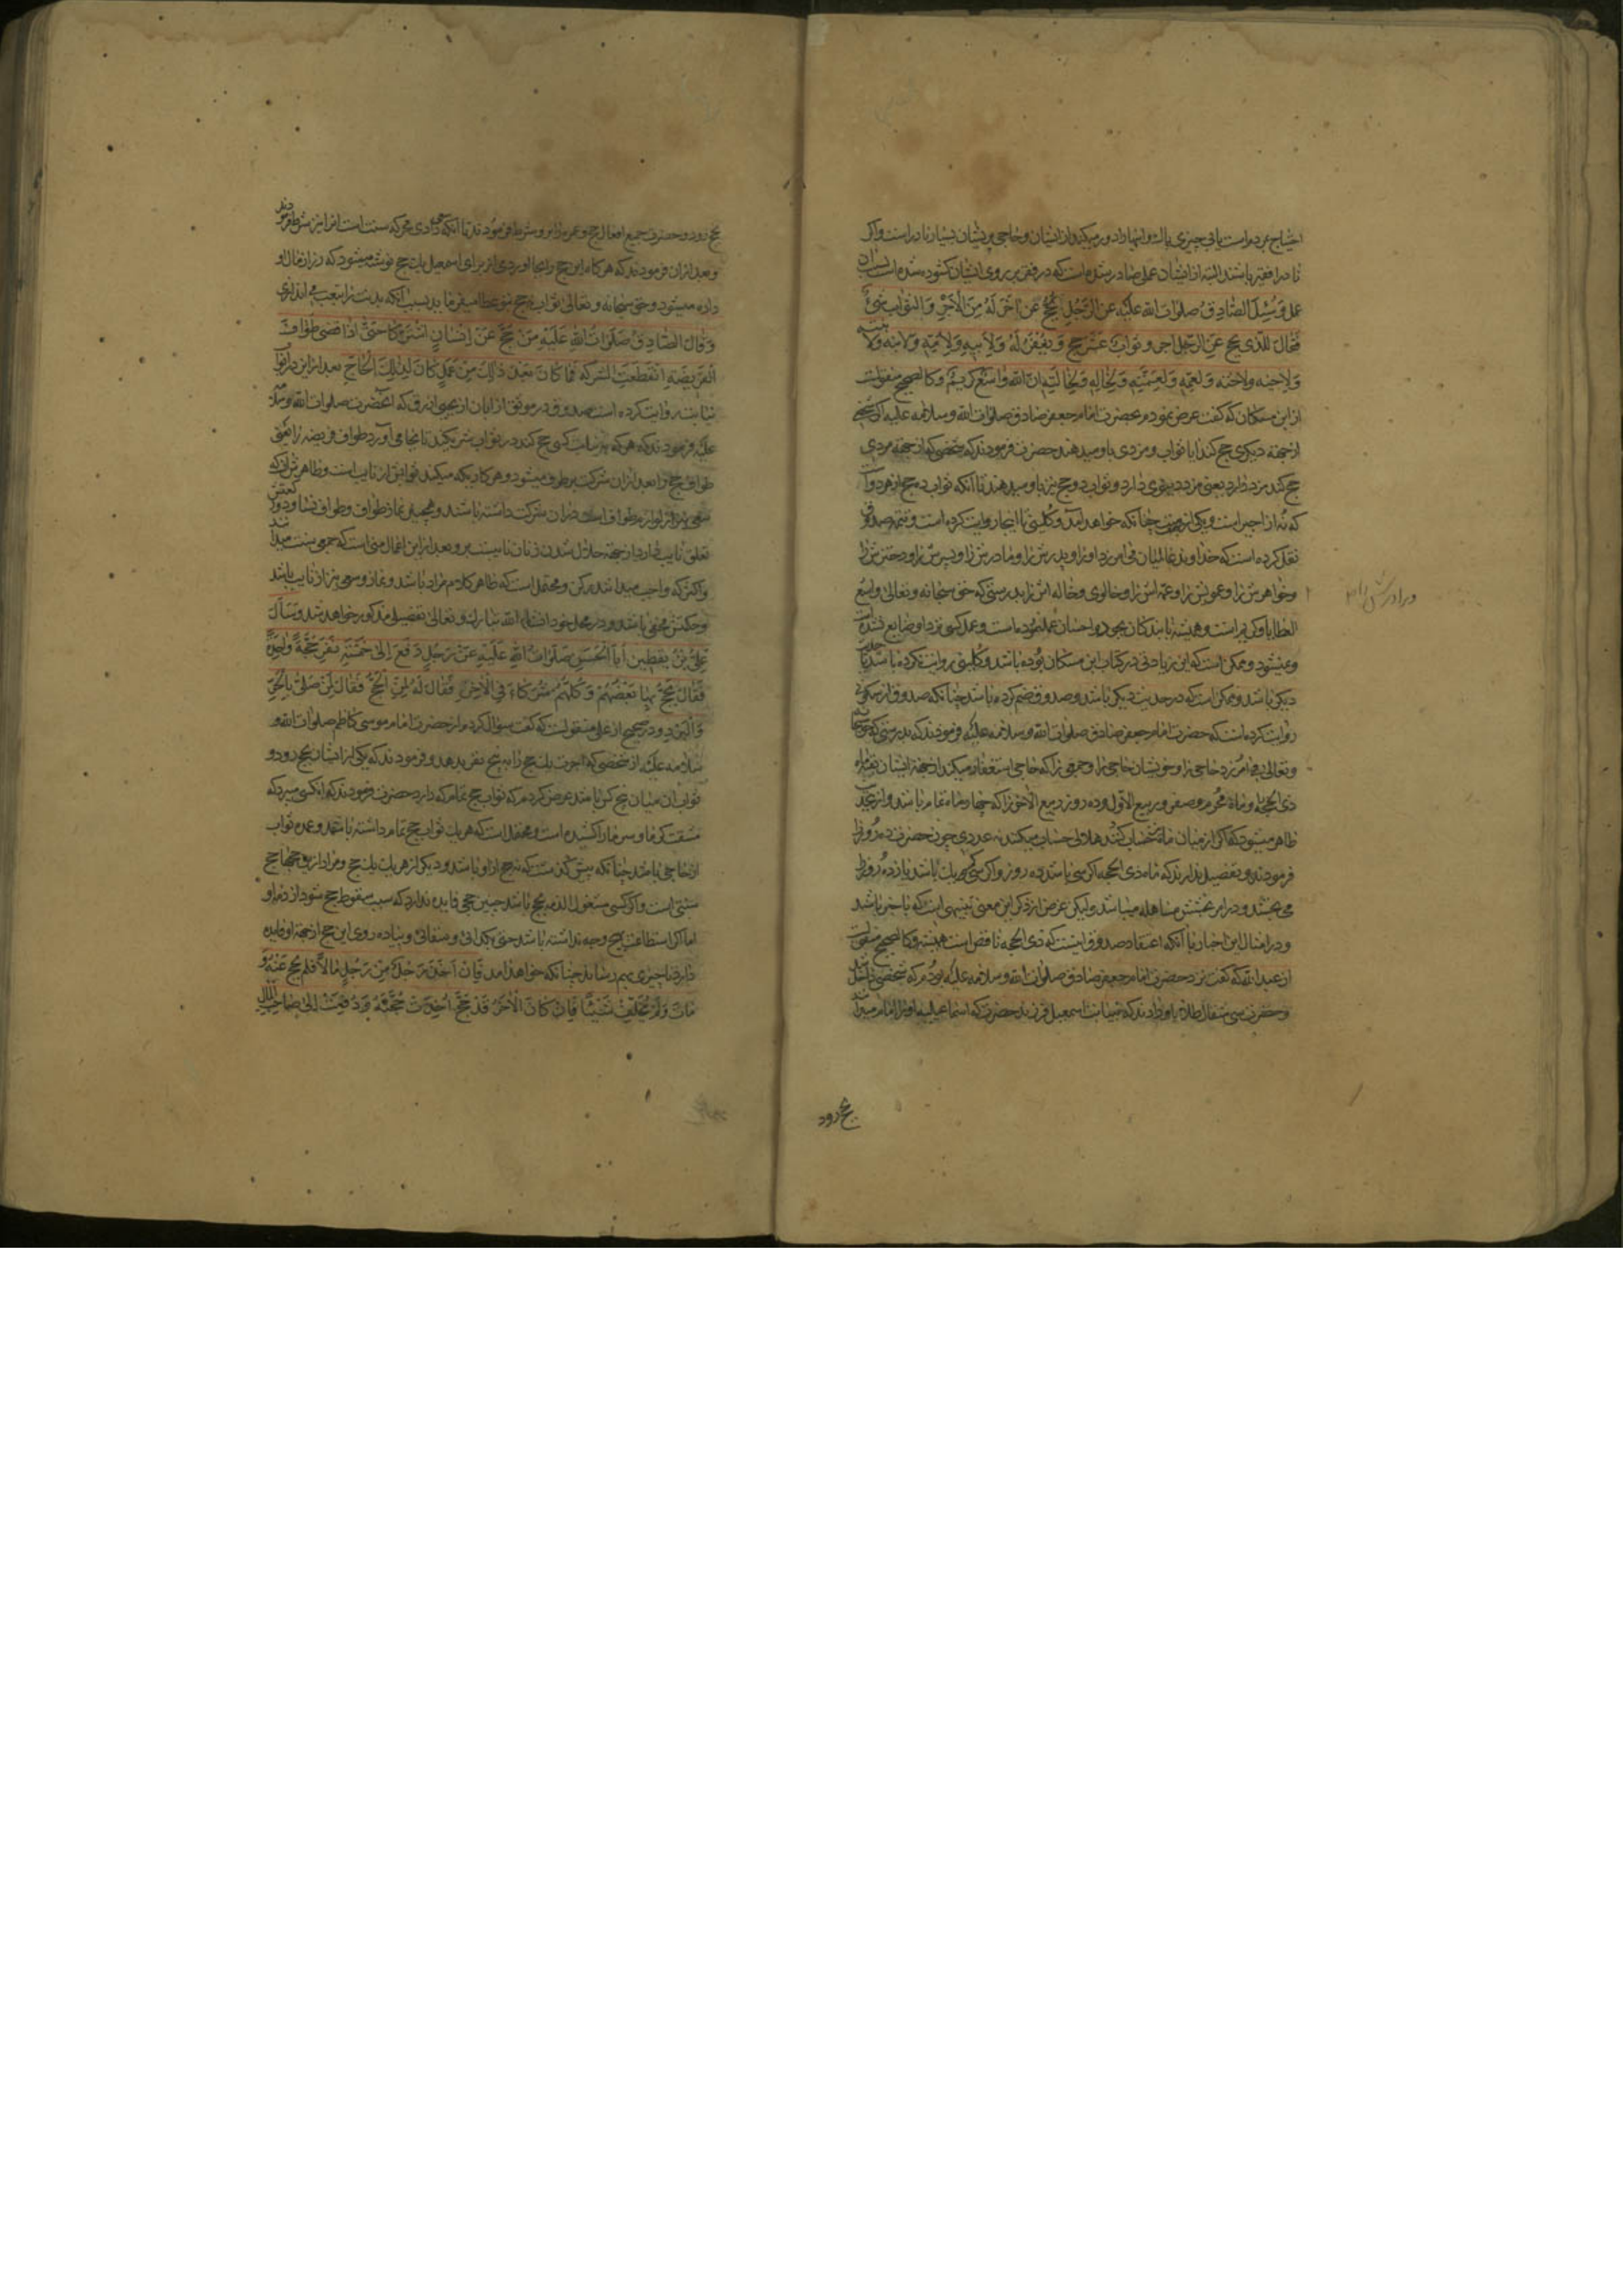 احتیاج بمردم است یا بی چیزی یا آنکه وامها را دور میکنند از ایشان و حاجی پریشان بسیار نادر است و اگر
نادرا فقیر باشند البته از ایشان عملی صادر شده است که در فقر بر روی ایشان گشوده شده است بسبب آن
عمل وَسُئِلَ الصَّادِقُ صلوات الله علیه عن الرَّجُلِ یَحُجُّ عَن آخَرَ لَهُ مِنَ الْاَجْرِ وَالثَّوابِ شَیْءٌ
فَقَالَ لِلَّذی یَحُجُّ عَنِ الرَّجُلِ اَجر و ثَوابُ عَشْرِ حِجَجٍ وَیُغْفَرُ لَهُ وَلِاَبیهِ وَلِاُمِّهِ وَلِابْنِهِ وَلِابنته
وَلِاَخیهِ وَلِاُخْتِهِ وَلِعَمِّهِ وَلِعَمَّتِهِ وَلِخَالِهِ وَلِخَالَتِهِ اِنَّ اللهَ وَاسِعٌ کَریمٌ و کالصحیح منقولست
از ابن مسکان که گفت عرض نمودم بحضرت امام جعفر صادق صلوات الله و سلامه علیه که شخصی
از جهة دیگری حج کند آیا ثواب و مزدی باو میدهند حضرت فرمودند که شخصی که از جهة مردی
حج کند مزد دارد یعنی مزد دنیوی دارد و ثواب ده حج نیز باو میدهند تا آنکه ثواب ده حج از هر دو
که نُه از اجیر است و یکی از چنانکه خواهد آمد و کلینی تا اینجا روایت کرده است و تتمه صدوق
نقل کرده است که خداوند عالمیان می آمرزد او را و پدرش را و مادرش را و پسرش را و دخترش را
و خواهرش را و عمویش را و عمّه اش را و خالوی و خاله اش را بدرستی که حق سبحانه و تعالی واسع
العطایا و کریم است و همیشه با بندگان بجود و احسان عمل نموده است و عمل کسی نزد او ضایع نشده است
و نمیشود و ممکن است که این زیادتی در کتاب ابن مسکان بوده باشد و کلینی روایت کرده باشد یا حدیث
دیگر باشد و ممکن است که در حدیث دیگر باشد و صدوق ضم کرده باشد چنانکه صدوق از سکونی
روایت کرده است که حضرت امام جعفر صادق صلوات الله و سلامه علیه فرمودند که بدرستی که حق سبحانه
و تعالی می آمرزد حاجی را و خویشان حاجی را و جمعی را که حاجی استغفار میکند از جهة ایشان بقیه ماه
ذی الحجه و ماه محرم و صفر و ربیع الاول و ده روز ربیع الآخر را که چهار ماه تمام باشد و از عدد
ظاهر میشود که اگر از میان ماه حساب کنند هلالی حساب میکنند نه عددی چون حضرت ده روز را
فرمودند و تفصیل ندادند که ماه ذی الحجه اگر سی باشد ده روز و اگر سی کم یک باشد یازده روز را
می بخشند و در امر بخشش مساهله میباشد و لیکن غرض از ذکر این معنی تنبیهی است که باخبر باشند
و در امثال این اخبار با آنکه اعتقاد صدوق اینست که ذی الحجه ناقص است همیشه و کالصحیح منقولست
از عبدالله که گفت نزد حضرت امام جعفر صادق صلوات الله و سلامه علیه بودم که شخصی داخل شد
و حضرت سی مثقال طلا باو دادند که بنیابت اسمعیل فرزند حضرت که اسماعیلیه او را امام میدانند
و برادرش را
بحج رود
بحج رود و حضرت جمیع افعال حج و عمره را بر او شرط فرمودند تا آنکه سعی وادی محسر که سنت است آنرا نیز شرط فرمودند
و بعد از آن فرمودند که هر گاه این حج را بجا آوردی از برای اسمعیل یک حج نوشته میشود که زر از مال او
داده میشود و حق سبحانه و تعالی ثواب نه حج بتو عطا میفرماید بسبب آنکه بدنت را بتعب می اندازی
وَقَالَ الصَّادِقُ صَلَوَاتُ اللهِ عَلَیْهِ مَنْ حَجَّ عَنْ اِنْسَانٍ اشْتَرَکَا حَتّیٰ اِذَا قَضیٰ طَوَافَ
الْفَرِیضَةِ انْقَطَعَتِ الشِّرْکَة فَمَا کَانَ بَعْدَ ذٰلِکَ مِنْ عَمَلٍ کَانَ لِذٰلِکَ الْحَاجِّ
روایت کرده است صدوق در موثق از ابان از یحیی ازرق که آنحضرت صلوات الله و سلامه
علیه فرمودند که هر که بنیابت کسی حج کند در ثواب شریکند تا بجا می آورد طواف فریضه را یعنی
طواف حج را و بعد از آن شرکت برطرف میشود و هر کاری که میکند ثوابش از نایب است و ظاهرش آنکه
سعی نیز از لوازم طواف است در آن شرکت داشته باشند و همچنین نماز طواف و طواف نسا و دو رکعتش
تعلق بنایب دارد از جهة حلال شدن زنان و بعد از این اعمال منی است که جمعی سنت میدانند
و اکثر که واجب میدانند رکن و محتمل است که ظاهر کلام مراد باشد و نماز و سعی نیز از نایب باشد
و حکمتش مخفی باشد و در محل خود انشاء الله تبارک و تعالی بتفصیل مذکور خواهد شد وَسَأَلَ
عَلِیُّ بْنُ یَقْطِین أَبَا الْحَسَنِ صَلَوَاتُ اللهِ عَلَیْهِ عَنْ رَجُلٍ دَفَعَ اِلیٰ خَمْسَةِ نَفَرٍ حَجَّةً وَاحِدَةً
فَقَالَ یَحُجُّ بِهَا بَعْضُهُمْ وَکُلُّهُمْ شُرَکَاءُ فِی الْاَجْرِ فَقَالَ لَهُ لِمَنِ الْحَجُّ فَقَالَ لِمَنْ صَلّیٰ بِالْحَرِّ
وَالْبَرْدِ و در صحیح از علی منقولست که گفت سؤال کردم از حضرت امام موسی کاظم صلوات الله و
سلامه علیه از شخصی که اجرت یک حج را به پنج نفر بدهد و فرمودند که یکی از ایشان بحج رود و
ثواب آن میان پنج کس باشد عرض کردم که ثواب حج تمام که دارد حضرت فرمودند که آنکسی میبرد که
مشقت گرما و سرما را کشیده است و محتمل است که هر یک ثواب حج تمام داشته باشند و عمده ثواب
از حاجی باشد چنانکه پیش گذشت که نه حج از او باشد و دیگر از هر یک یک حج و مراد از این حجها حج
سنتی است و اگر کسی مشغول الذمه بحج باشد چنین حجی فایده ندارد که سبب سقوط حج شود از ذمه او
اما اگر استطاعت بهیچ وجه نداشته باشد حتی بگدائی و سقائی و پیاده روی این حج از جهة او فایده
دارد تا چیزی بهم رساند چنانکه خواهد آمد فَاِنْ اَخَذَ رَجُلٌ مِنْ رَجُلٍ مَالاً فَلَمْ یَحُجَّ عَنْهُ وَ
مَاتَ وَلَمْ یُخَلِّفْ شَیْئًا فَاِنْ کَانَ الْاَجیرُ قَدْ حَجَّ اُخِذَتْ حَجَّتُهُ وَدُفِعَتْ اِلیٰ صَاحِبِ الْمَالِ